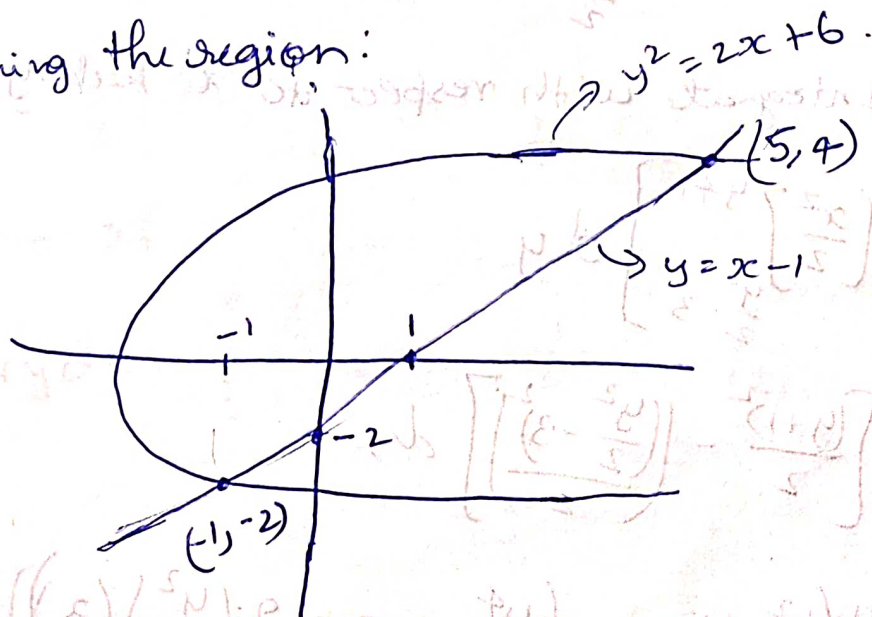 ing the region:
y² = 2x + 6.
(5, 4)
y = x - 1
-1
1
-2
(-1, -2)